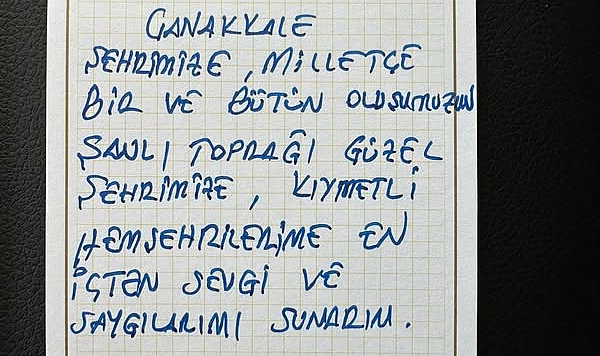 ÇANAKKALE
ŞEHRİMİZE, MİLLETÇE
BİR VE BÜTÜN OLDUĞUMUZUN
ŞANLI TOPRAĞI GÜZEL
ŞEHRİMİZE, KIYMETLİ
HEMŞEHRİLERİME EN
İÇTEN SEVGİ VE
SAYGILARIMI SUNARIM.